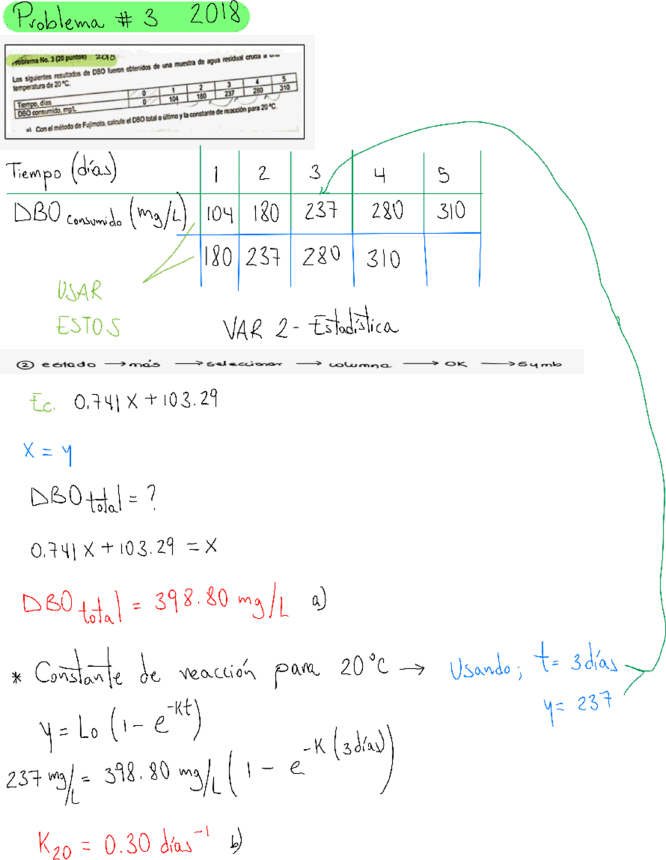 Problema # 3 2018
Problema No. 3 (20 puntos) 2018
Los siguientes resultados de DBO fueron obtenidos de una muestra de agua residual cruda a una
temperatura de 20 °C.
Tiempo, días 0 1 2 3 4 5
DBO consumido, mg/L 0 104 180 237 280 310
a) Con el método de Fujimoto, calcule el DBO total o último y la constante de reacción para 20 °C.
Tiempo (días) 1 2 3 4 5
DBO consumido (mg/L) 104 180 237 280 310
180 237 280 310
USAR
ESTOS
VAR 2 - Estadística
② estado → más → seleccionar → columna → OK → symb
Ec. 0.741 X + 103.29
X = y
DBO total = ?
0.741 X + 103.29 = X
DBO total = 398.80 mg/L a)
* Constante de reacción para 20°C → Usando; t = 3 días
y = 237
y = Lo (1 - e^-Kt)
237 mg/L = 398.80 mg/L (1 - e^-K (3 días))
K20 = 0.30 días^-1 b)